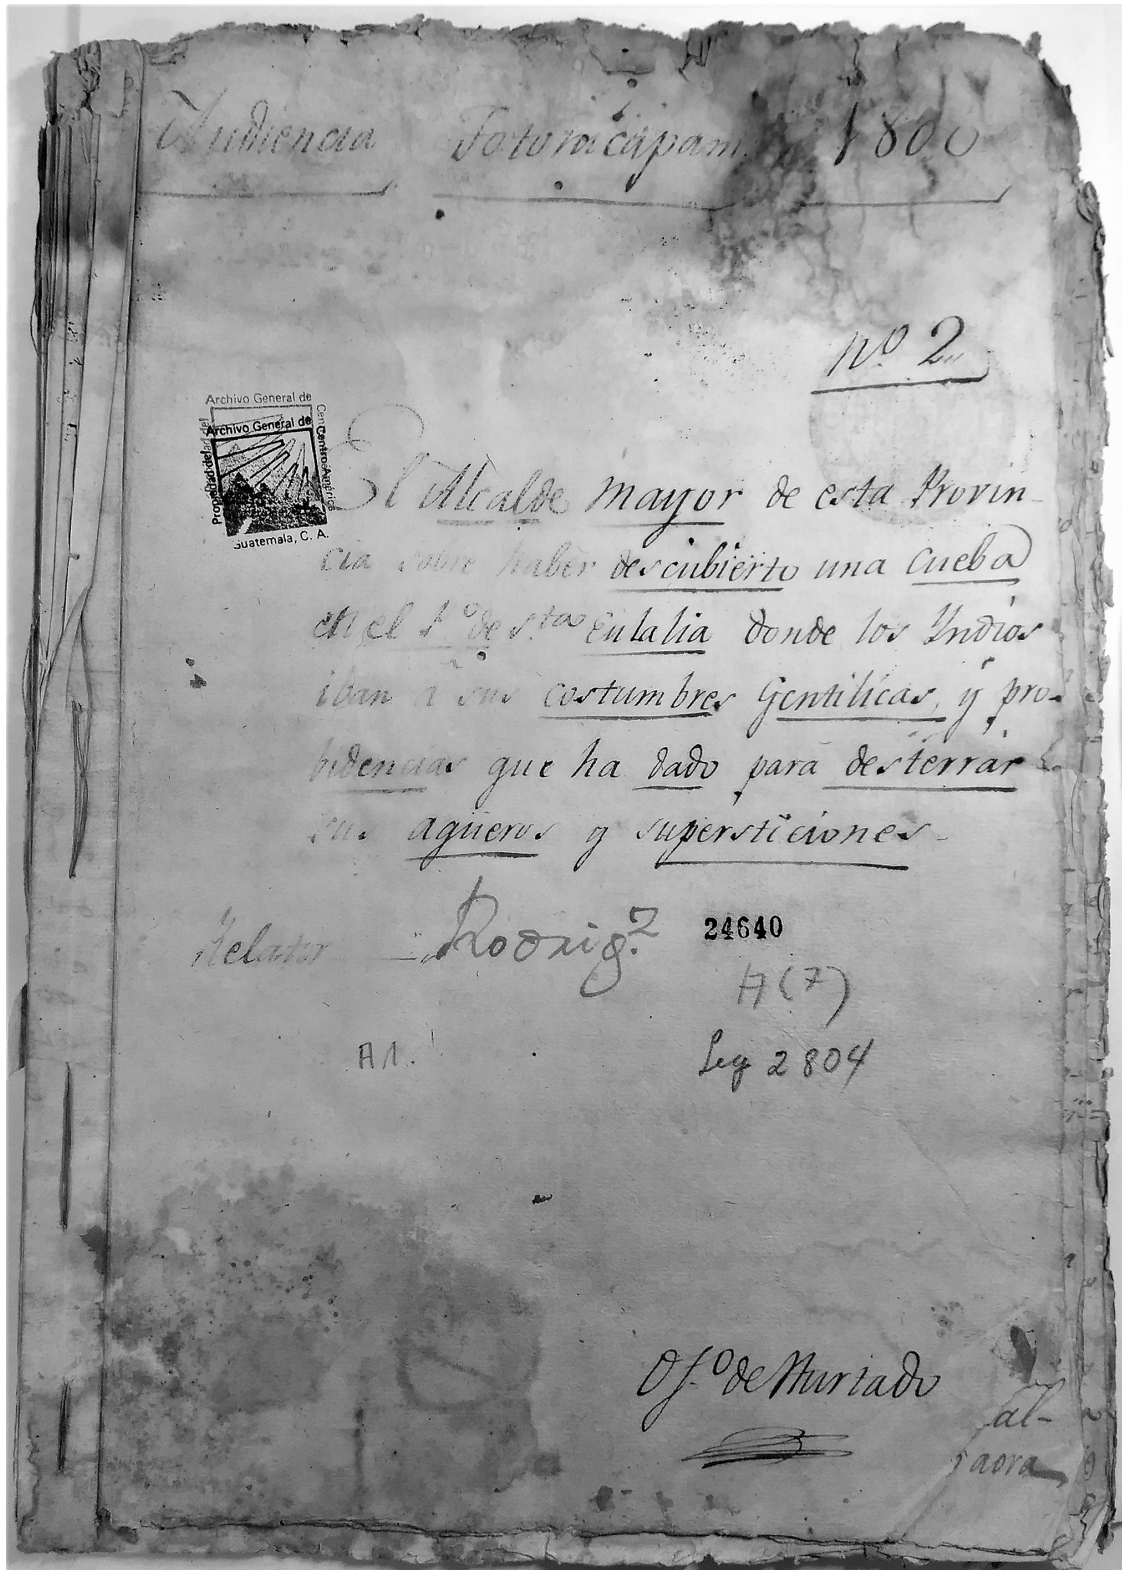 Audiencia Totonicapam 1800
Nº 2„
Archivo General de
Archivo General de
Centro América
Propiedad del
Guatemala, C. A.
El Alcalde mayor de esta Provin-
cia sobre haber descubierto una Cueba
en el P.º de S.ta Eulalia donde los Yndios
iban a sus costumbres Gentilicas, y pro-
bidencias que ha dado para desterrar
sus agüeros y supersticiones-
Relator - Rodrig.z
24640
A (7)
A1.
Leg 2804
Of.º de Hurtado